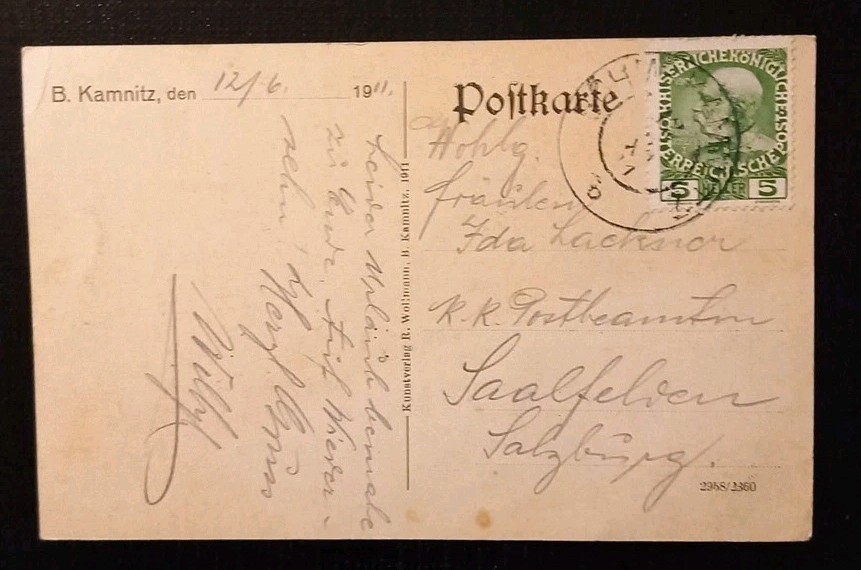 B. Kamnitz, den 12/6. 1911.
Postkarte
KAISERLICHE KÖNIGLICHE ÖSTERREICHISCHE POST
5 HELLER 5
Wohlg.
Fräulein
Ida Lackner
k. k. Postbeamtin
Saalfelden
Salzburg.
2958/2360
Kunstverlag R. Woltmann, B. Kamnitz, 1911
Leider Urlaub beinahe
zu Ende. Auf Wieder-
sehn!
Herzl. Gruss
Willy